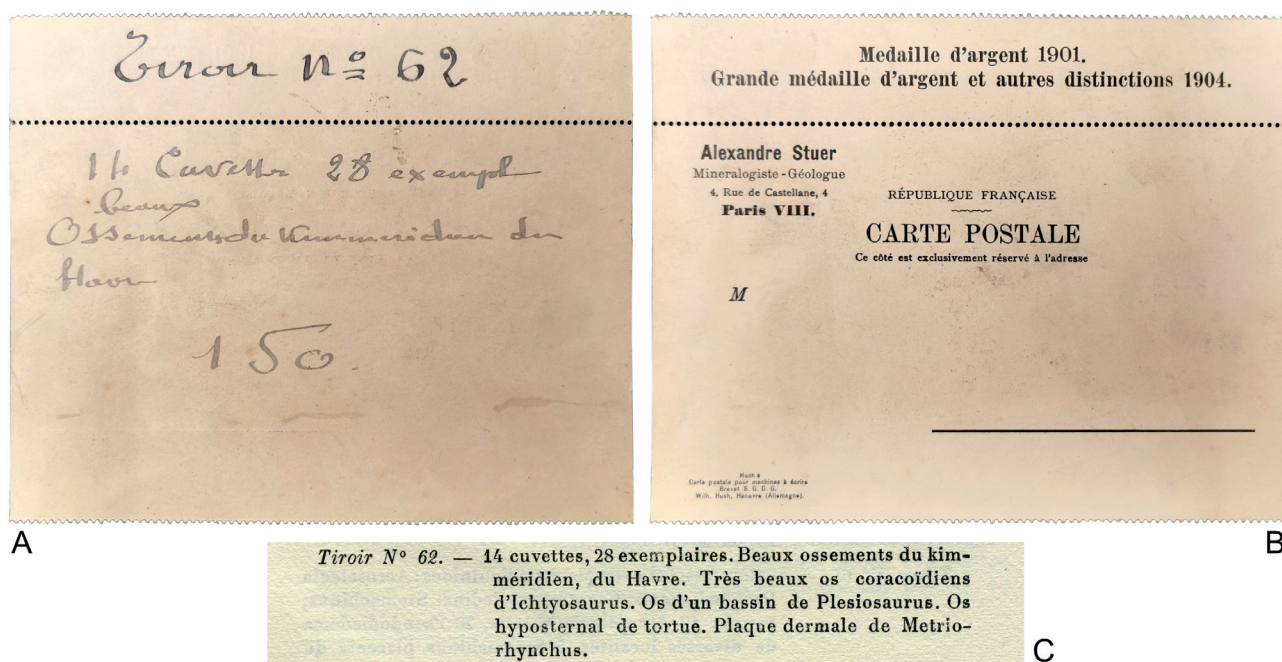 Tiroir No 62
14 Cuvettes 28 exempl
beaux
Ossements du Kimmeridien du
Havre
150.
A
Medaille d'argent 1901.
Grande médaille d'argent et autres distinctions 1904.
Alexandre Stuer
Mineralogiste-Géologue
4, Rue de Castellane, 4
Paris VIII.
RÉPUBLIQUE FRANÇAISE
CARTE POSTALE
Ce côté est exclusivement réservé à l'adresse
M
Hush's
Carte postale pour machines à écrire
Brevet S. G. D. G.
Wilh. Hush, Hanovre (Allemagne).
B
Tiroir N° 62. — 14 cuvettes, 28 exemplaires. Beaux ossements du kim-
méridien, du Havre. Très beaux os coracoïdiens
d'Ichtyosaurus. Os d'un bassin de Plesiosaurus. Os
hyposternal de tortue. Plaque dermale de Metrio-
rhynchus.
C